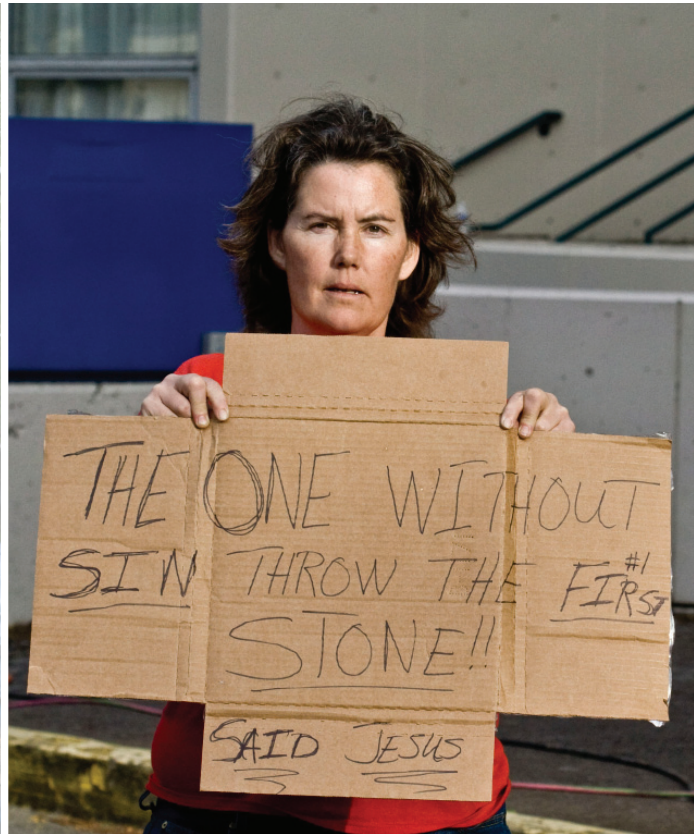 THE ONE WITHOUT
SIN THROW THE #1 FIRST
STONE!!
SAID JESUS